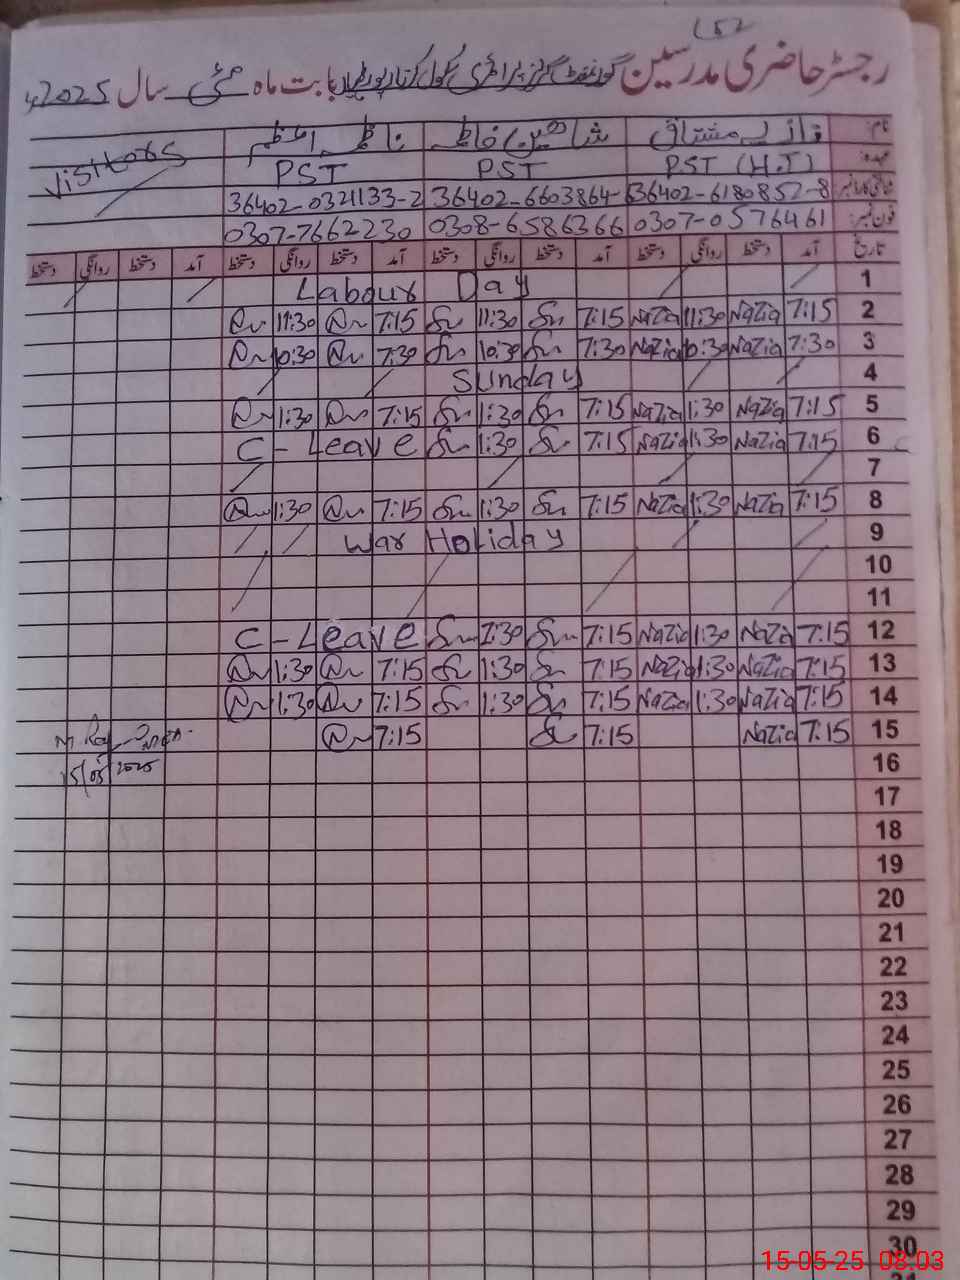 152
رجسٹر حاضری مدرسین گورنمنٹ گرلز پرائمری سکول بابت ماہ مئی سال 2025ء
نام: نازیہ مشتاق شاھین فاطمہ Visitors
عہدہ: PST (H.T) PST PST
شناختی کارڈ نمبر 36402-6180852-8 36402-6603864- 36402-0321133-2
فون نمبر: 0307-0576461 0308-6586366 0307-7662230
تاریخ آمد دستخط روانگی دستخط آمد دستخط روانگی دستخط آمد دستخط روانگی دستخط آمد دستخط روانگی دستخط
Labour Day 1
11:30 7:15 11:30 7:15 Nazia 11:30 Nazia 7:15 2
10:30 7:30 10:30 7:30 Nazia 10:30 Nazia 7:30 3
Sunday 4
1:30 7:15 1:30 7:15 Nazia 1:30 Nazia 7:15 5
C-Leave 1:30 7:15 Nazia 1:30 Nazia 7:15 6
7
1:30 7:15 1:30 7:15 Nazia 1:30 Nazia 7:15 8
War Holiday 9
10
11
C-Leave 1:30 7:15 Nazia 1:30 Nazia 7:15 12
1:30 7:15 1:30 7:15 Nazia 1:30 Nazia 7:15 13
1:30 7:15 1:30 7:15 Nazia 1:30 Nazia 7:15 14
7:15 7:15 Nazia 7:15 15
15/05/2025 16
17
18
19
20
21
22
23
24
25
26
27
28
29
30
15-05-25 08:03